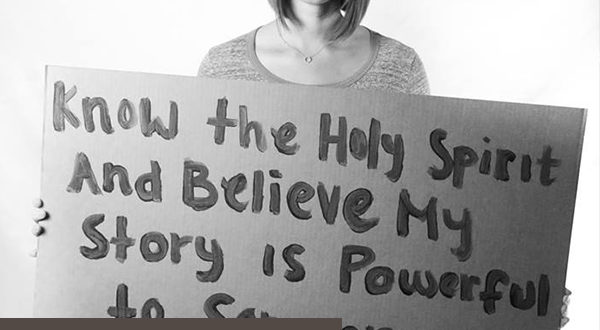 Know the Holy Spirit
And Believe My
Story is Powerful
to